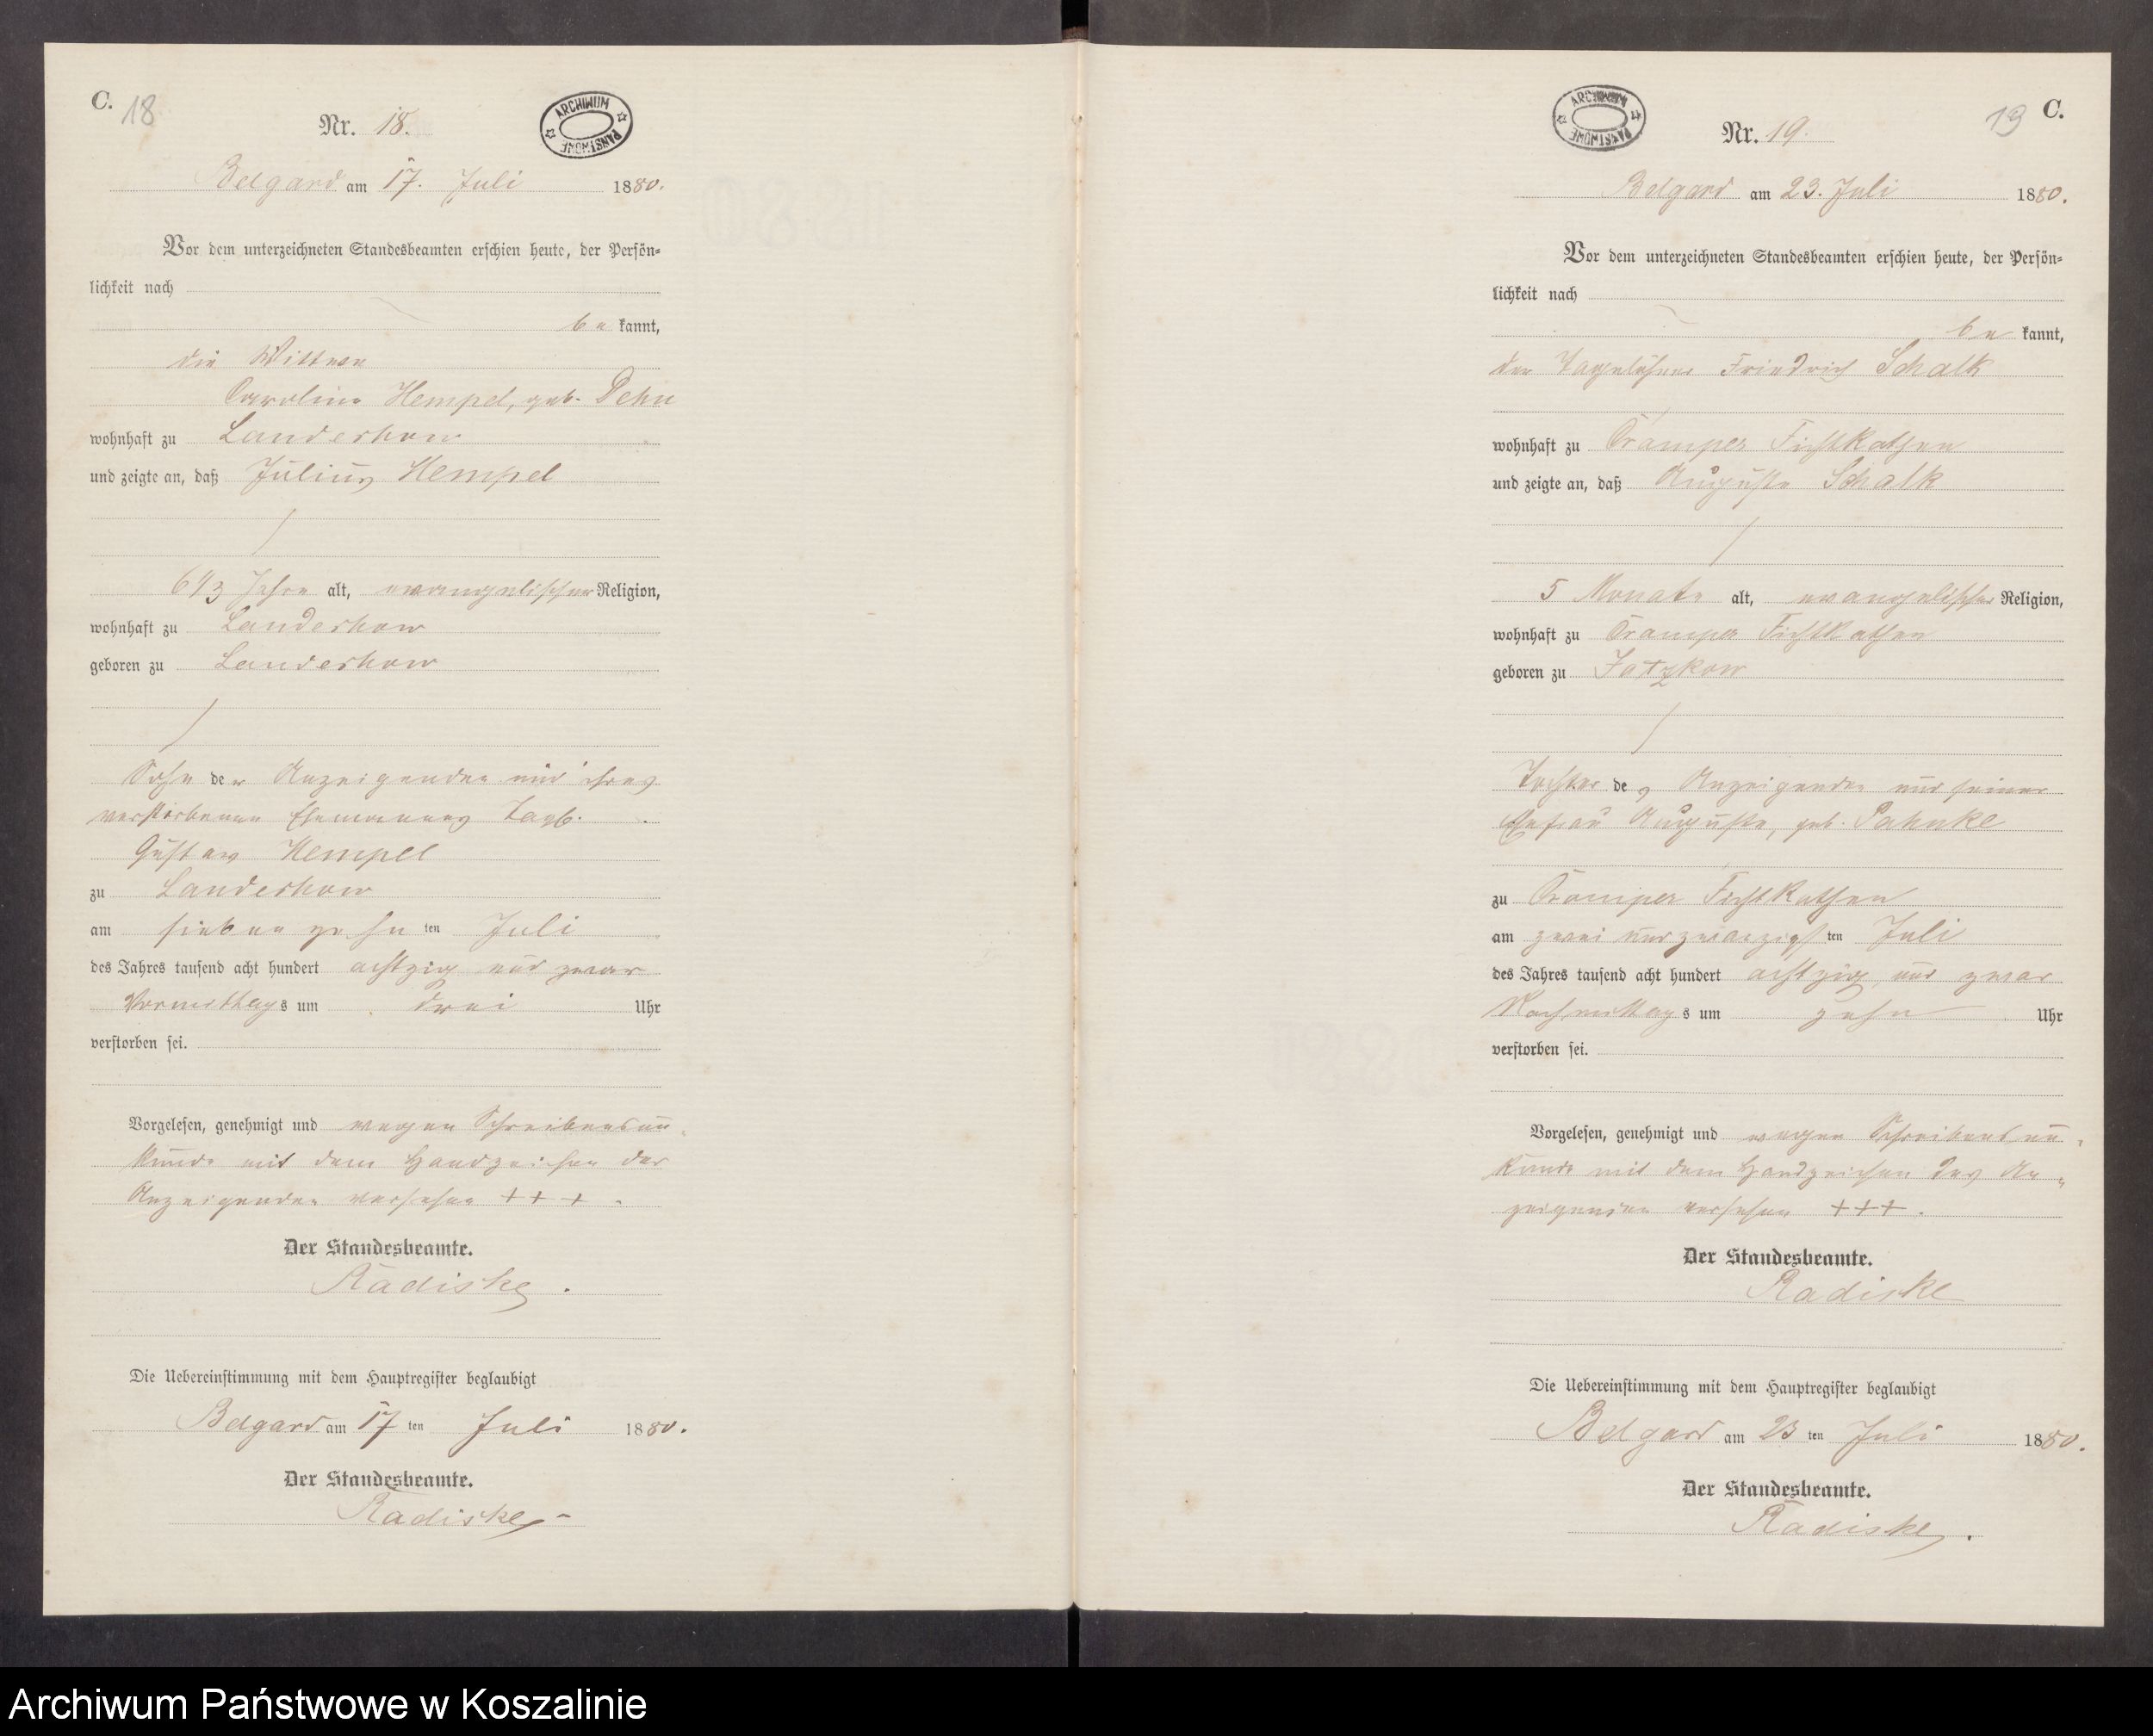 C. 18
Nr. 18.
ARCHIWUM PAŃSTWOWE
Belgard am 17. Juli 1880.
Vor dem unterzeichneten Standesbeamten erschien heute, der Persön-
lichkeit nach
be kannt,
die Wittwe
Caroline Hempel, geb. Dehn
wohnhaft zu Landeshow
und zeigte an, daß Julius Hempel
6 1/3 Jahre alt, evangelischer Religion,
wohnhaft zu Landeshow
geboren zu Landeshow
Sohn der Anzeigenden und ihres
verstorbenen Ehemannes Tagb.
Gustav Hempel
zu Landeshow
am siebenzehnten Juli
des Jahres tausend acht hundert achtzig und zwar
Vormittags um drei Uhr
verstorben sei.
Vorgelesen, genehmigt und wegen Schreibensun-
kunde mit dem Handzeichen der
Anzeigenden versehen +++.
Der Standesbeamte.
Radiske.
Die Uebereinstimmung mit dem Hauptregister beglaubigt
Belgard am 17 ten Juli 1880.
Der Standesbeamte.
Radiske
ARCHIWUM PAŃSTWOWE
19 C.
Nr. 19.
Belgard am 23. Juli 1880.
Vor dem unterzeichneten Standesbeamten erschien heute, der Persön-
lichkeit nach
be kannt,
der Tagelöhner Friedrich Schalk
wohnhaft zu Cramper Fichtkathen
und zeigte an, daß Auguste Schalk
5 Monate alt, evangelischer Religion,
wohnhaft zu Cramper Fichtkathen
geboren zu Jatzkow
Tochter des Anzeigenden und seiner
Ehefrau Auguste, geb. Pahnke
zu Cramper Fichtkathen
am zwei und zwanzigsten Juli
des Jahres tausend acht hundert achtzig und zwar
Nachmittags um zehn Uhr
verstorben sei.
Vorgelesen, genehmigt und wegen Schreibensun-
kunde mit dem Handzeichen des An-
zeigenden versehen +++.
Der Standesbeamte.
Radiske
Die Uebereinstimmung mit dem Hauptregister beglaubigt
Belgard am 23 ten Juli 1880.
Der Standesbeamte.
Radiske.
Archiwum Państwowe w Koszalinie